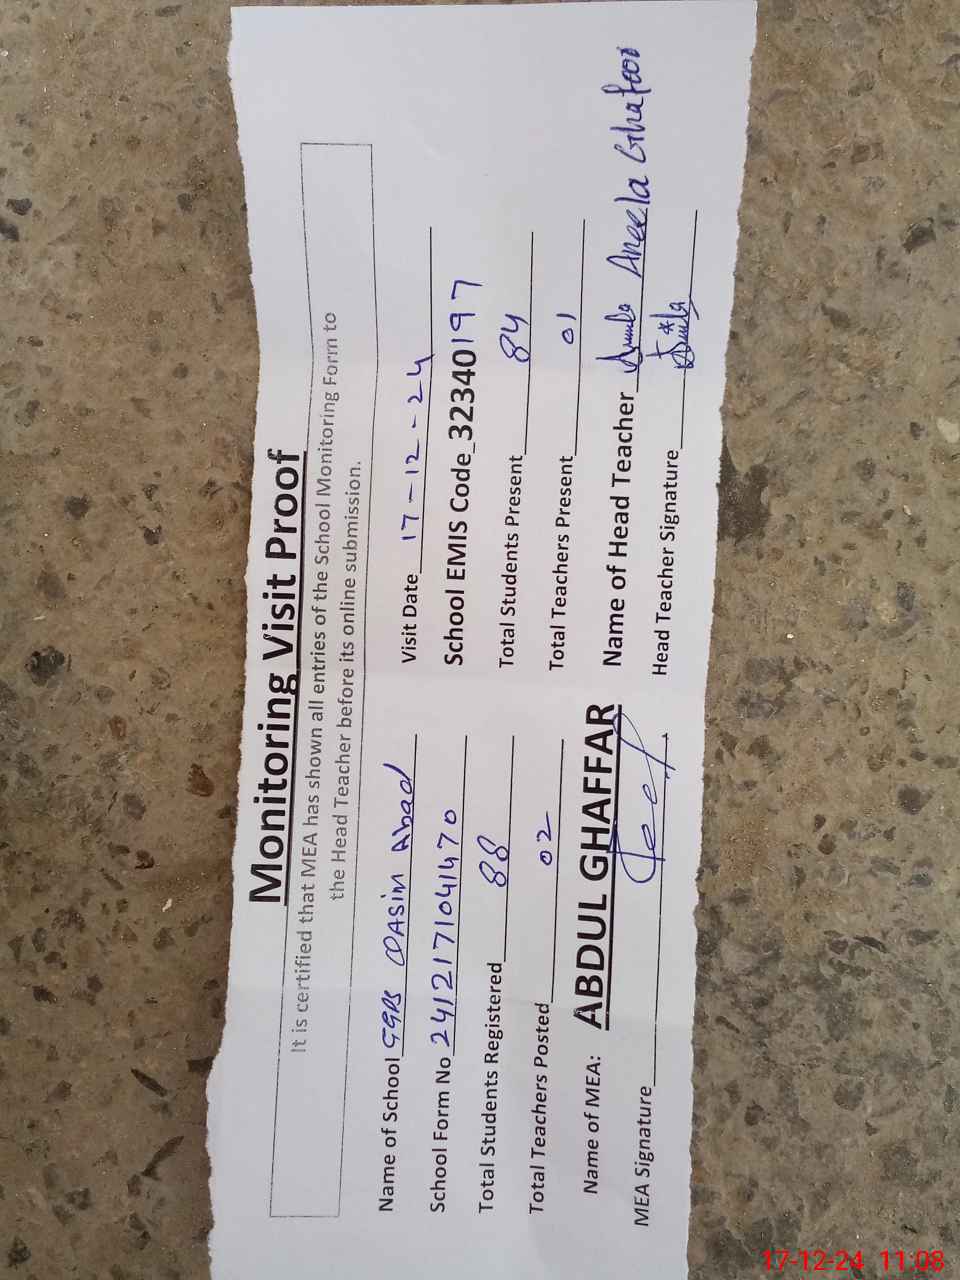 Monitoring Visit Proof
It is certified that MEA has shown all entries of the School Monitoring Form to
the Head Teacher before its online submission.
Name of School GGPS QASim Abad Visit Date 17-12-24
School Form No 241217104470 School EMIS Code_32340197
Total Students Registered 88 Total Students Present 84
Total Teachers Posted 02 Total Teachers Present 01
Name of MEA: ABDUL GHAFFAR Name of Head Teacher Aneela Ghafoor
MEA Signature Head Teacher Signature
17-12-24 11:08